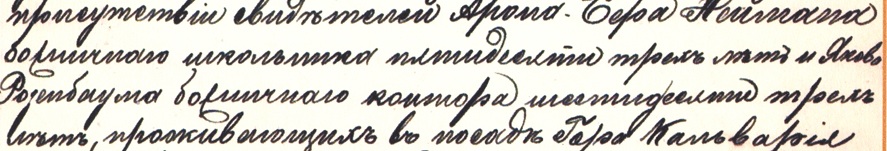 присутствіи свидѣтелей Арона-Бера Неймана
божничнаго школьника пятидесяти трехъ лѣтъ и Якова
Розенбаума божничнаго кантора шестидесяти трехъ
лѣтъ, проживающихъ въ посадѣ Гора Кальварія